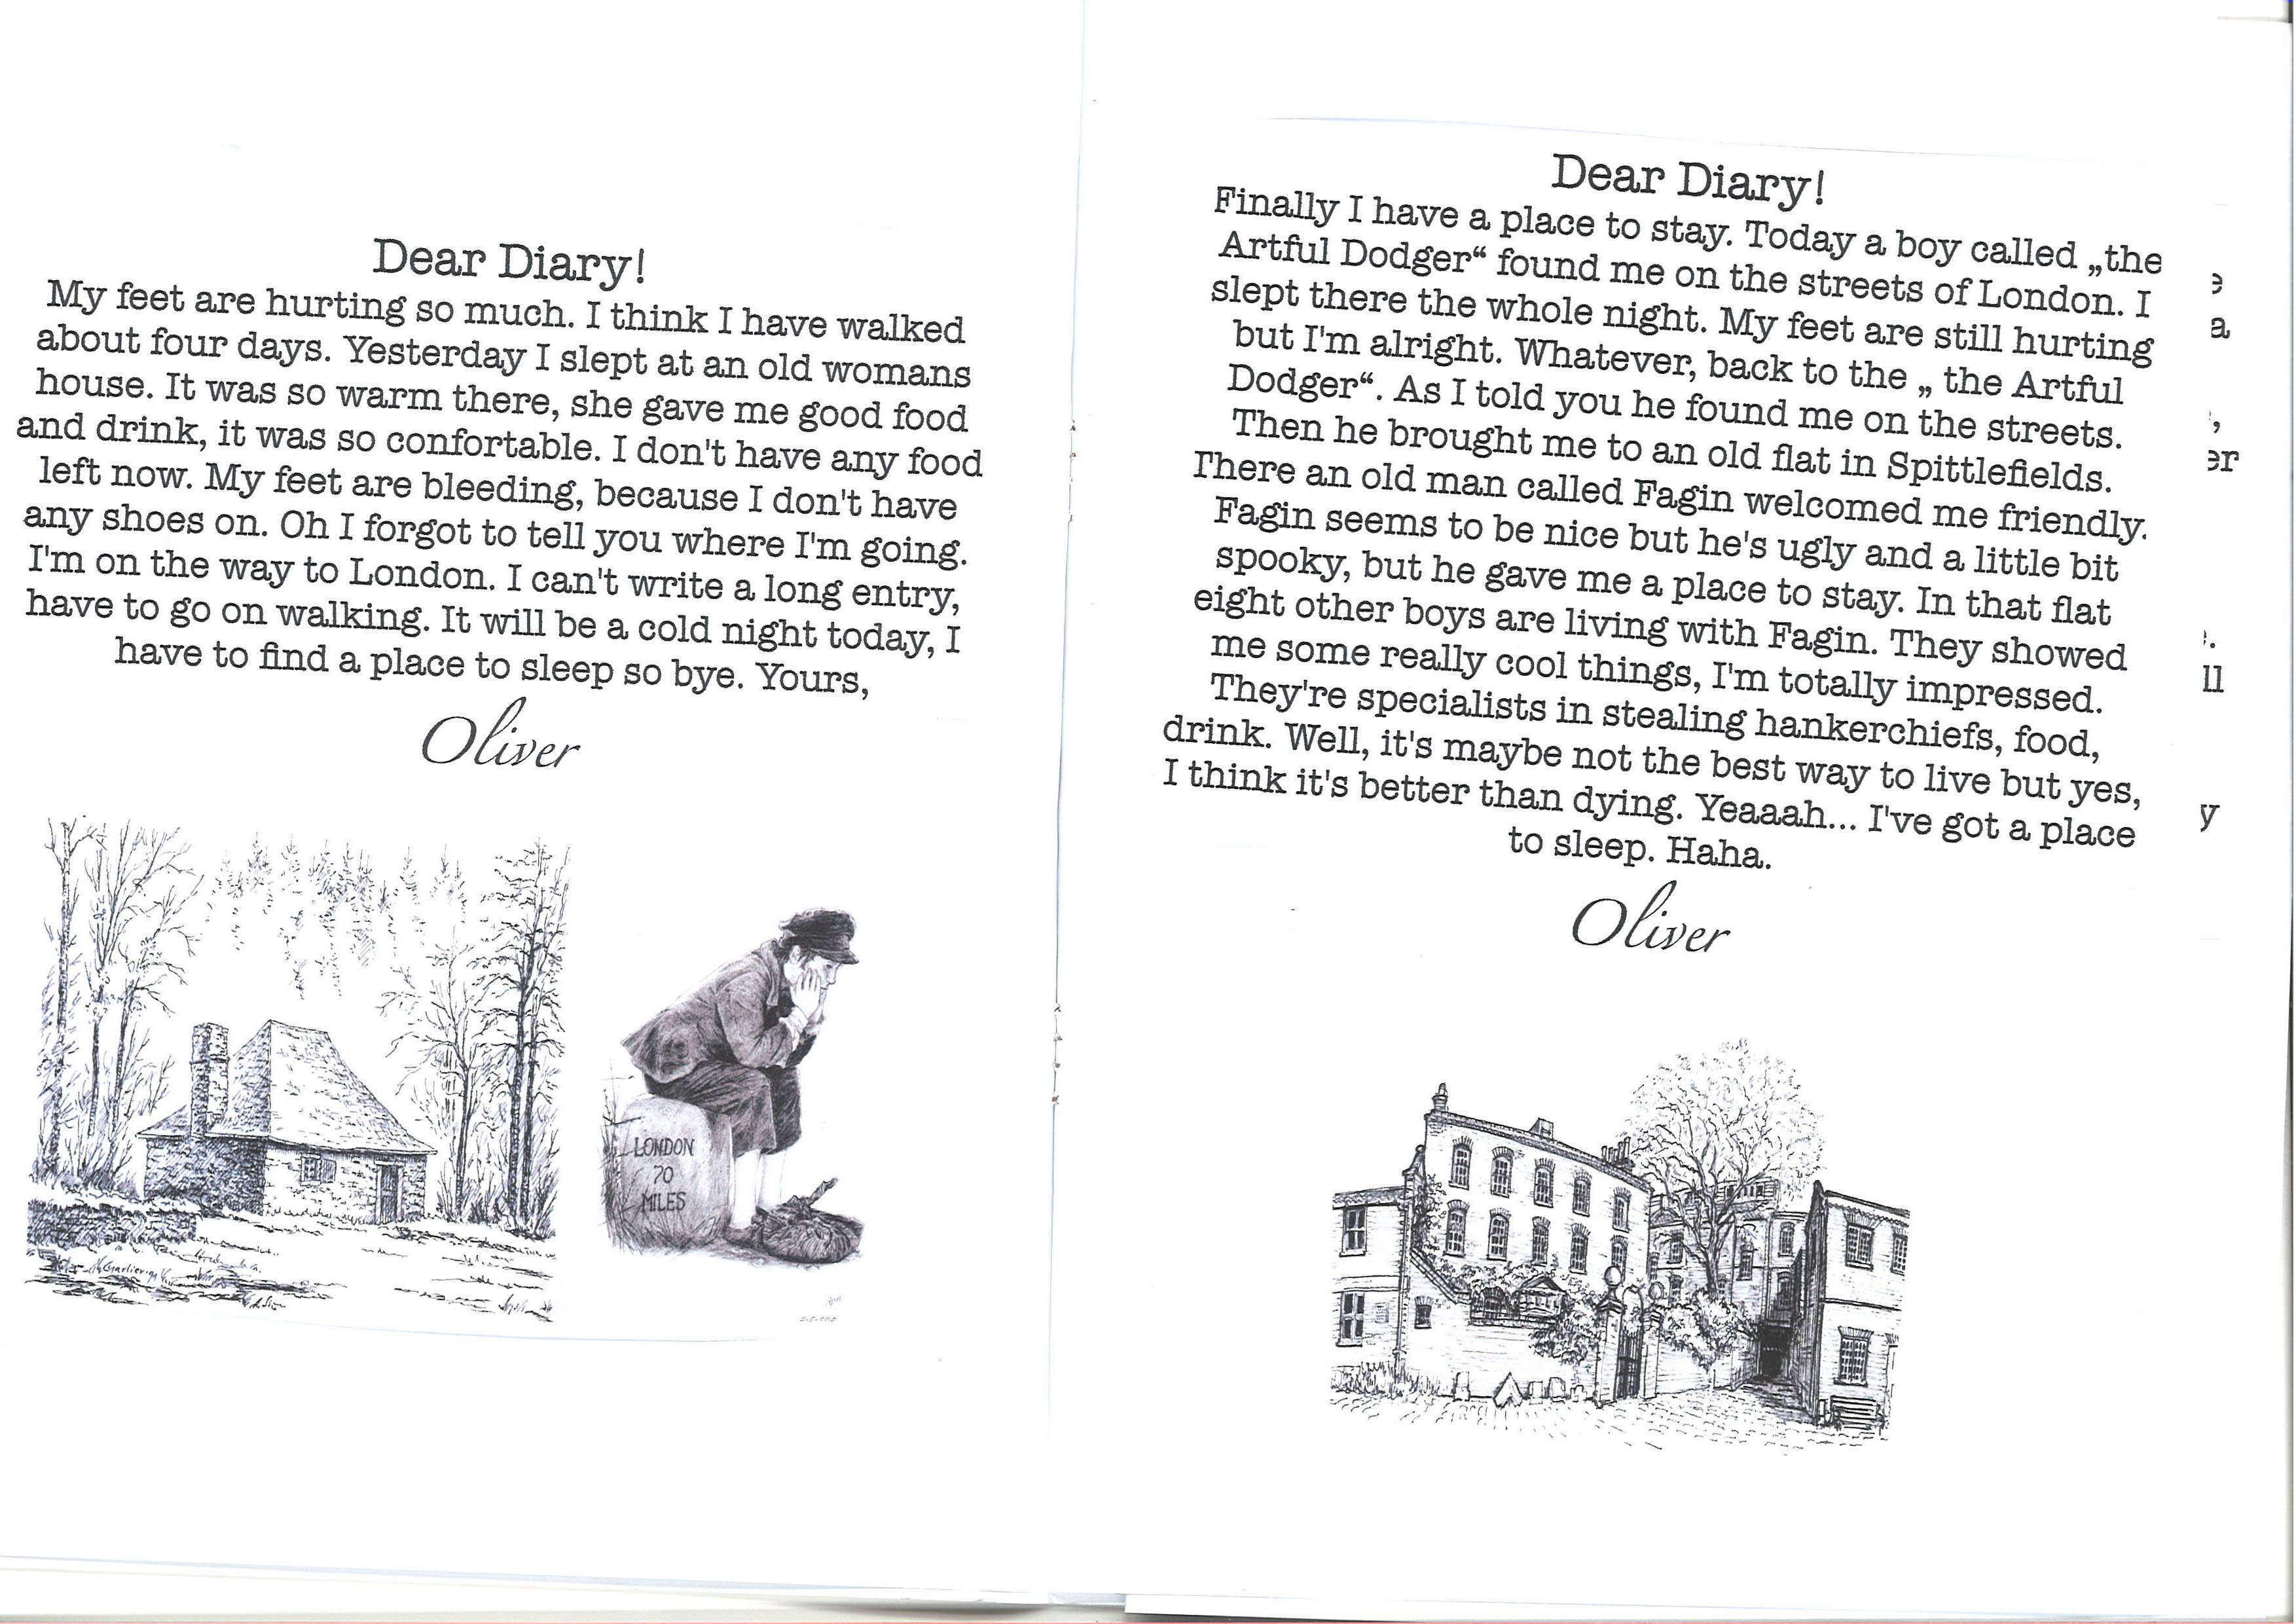 Dear Diary!
My feet are hurting so much. I think I have walked
about four days. Yesterday I slept at an old womans
house. It was so warm there, she gave me good food
and drink, it was so confortable. I don't have any food
left now. My feet are bleeding, because I don't have
any shoes on. Oh I forgot to tell you where I'm going.
I'm on the way to London. I can't write a long entry,
have to go on walking. It will be a cold night today, I
have to find a place to sleep so bye. Yours,
Oliver
LONDON
70
MILES
Dear Diary!
Finally I have a place to stay. Today a boy called „the
Artful Dodger“ found me on the streets of London. I
slept there the whole night. My feet are still hurting
but I'm alright. Whatever, back to the „ the Artful
Dodger“. As I told you he found me on the streets.
Then he brought me to an old flat in Spittlefields.
There an old man called Fagin welcomed me friendly.
Fagin seems to be nice but he's ugly and a little bit
spooky, but he gave me a place to stay. In that flat
eight other boys are living with Fagin. They showed
me some really cool things, I'm totally impressed.
They're specialists in stealing hankerchiefs, food,
drink. Well, it's maybe not the best way to live but yes,
I think it's better than dying. Yeaaah... I've got a place
to sleep. Haha.
Oliver
e
a
,
er
.
ll
y